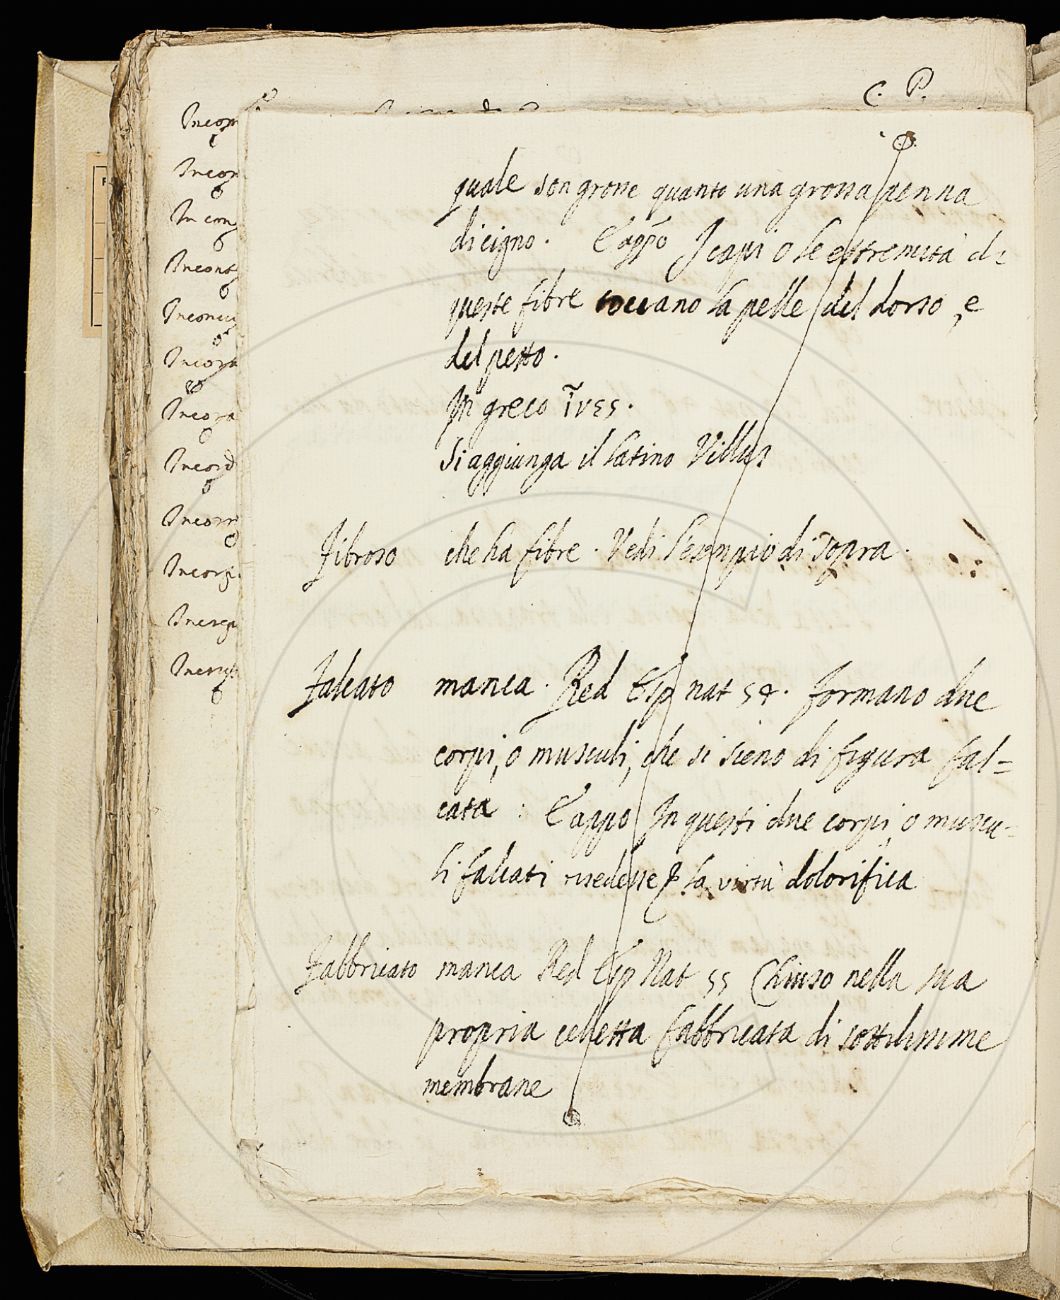 C. P.
quale son grosse quanto una grossa penna
di cigno. E appo I capi o le estremità di
queste fibre toccano la pelle del dorso, e
del petto.
In greco ἶνες.
Si aggiunga il latino Villus
Fibroso che ha fibre. Vedi l'esempio di sopra.
Falcato manca. Red Esp nat 54. formano due
corpi, o musculi, che si sieno di figura fal=
cata : E appo In questi due corpi, o muscu-
li falcati risedesse la virtù dolorifica
Fabbricato manca Red Esp Nat 55 Chiuso nella sua
propria celletta fabbricata di sottilissime
membrane